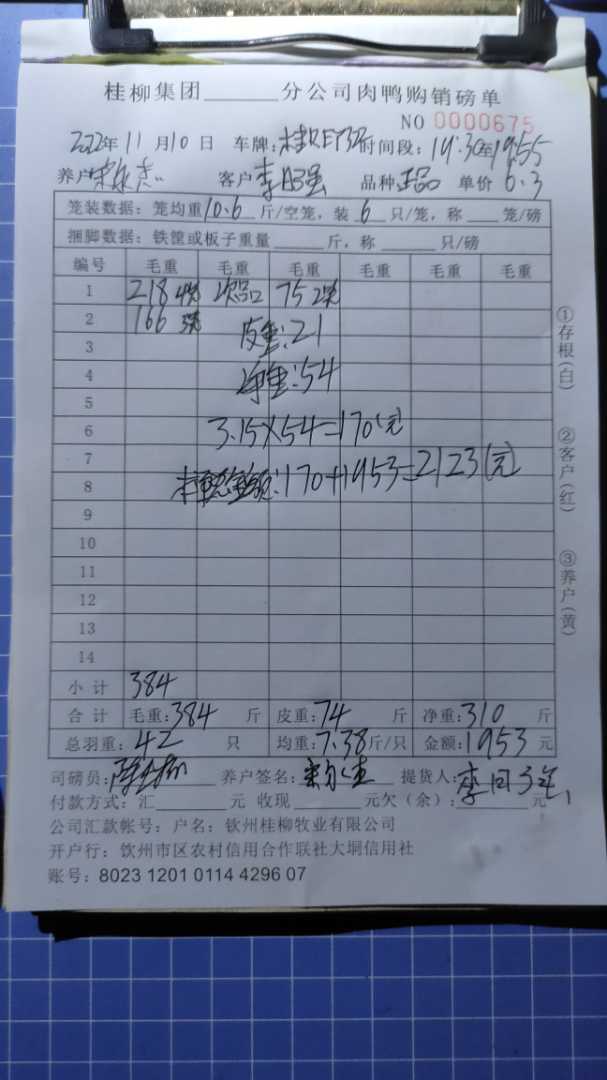 桂柳集团______分公司肉鸭购销磅单
NO 0000675
2022年 11月 10日 车牌: 时间段: 19:30至19:55
养户: 客户: 李 品种 正品 单价 6.3
笼装数据: 笼均重10.6斤/空笼, 装 6 只/笼, 称___笼/磅
捆脚数据: 铁筐或板子重量______斤, 称______只/磅
编号 毛重 毛重 毛重 毛重 毛重 毛重
1 218 4笼 次品 75 2笼
2 166 3笼
皮重:21
3
净重:54
4
5
6 3.15×54=170(元)
7
本车总金额:170+1953=2123(元)
8
9
10
11
12
13
14
小计 384
合计 毛重:384 斤 皮重:74 斤 净重:310 斤
总羽重: 42 只 均重:7.38斤/只 金额:1953 元
司磅员: 养户签名: 提货人: 李
付款方式: 汇______元 收现______元欠(余):______元
公司汇款帐号: 户名: 钦州桂柳牧业有限公司
开户行: 钦州市区农村信用合作联社大垌信用社
账号: 8023 1201 0114 4296 07
①存根(白)
②客户(红)
③养户(黄)